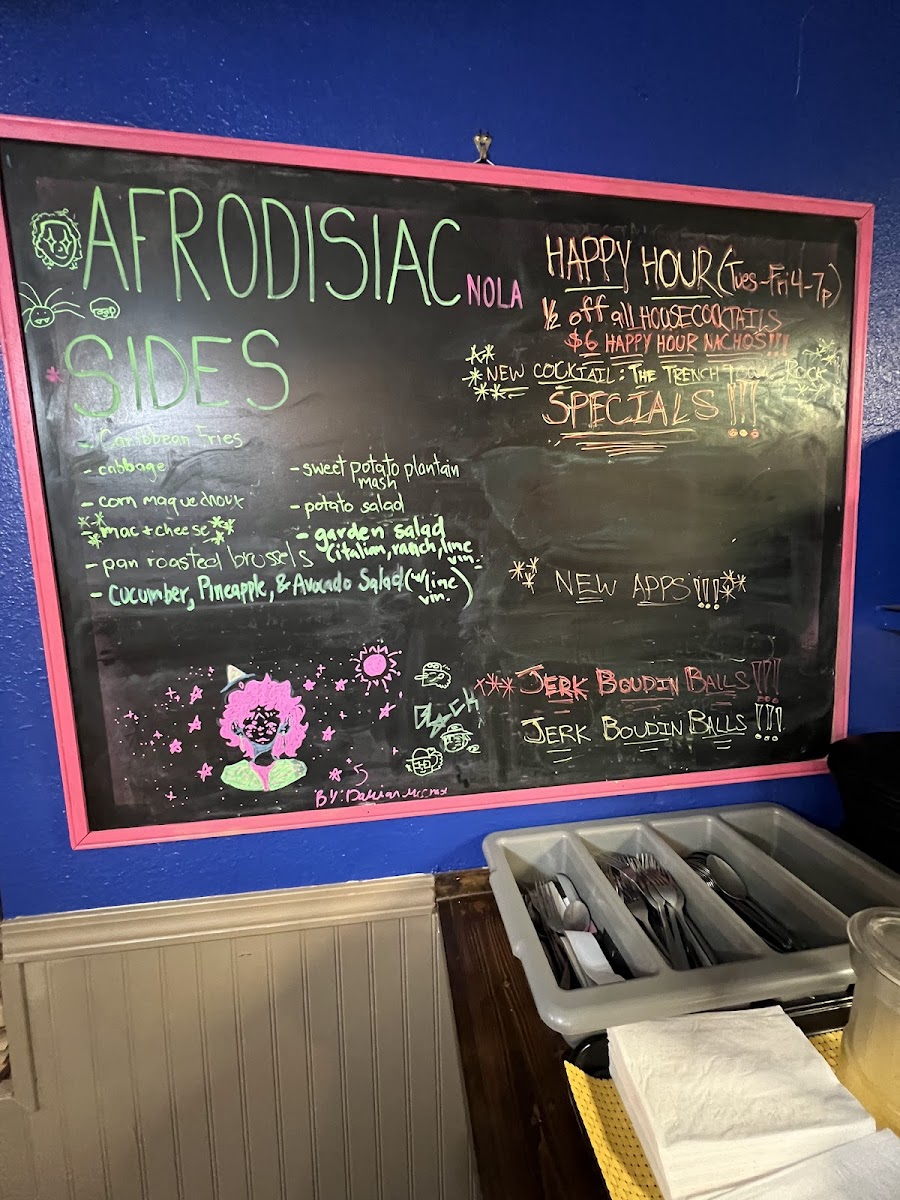 AFRODISIAC NOLA
SIDES
- Caribbean Fries
- cabbage
- corn maque choux
mac + cheese
- pan roasted brussels
- cucumber, Pineapple, & Avocado Salad (w/ lime
vin.)
- sweet potato plantain
mash
- potato salad
- garden salad
(italian, ranch, lime
vin.
HAPPY HOUR (Tues-Fri 4-7p)
1/2 off all HOUSE COCKTAILS
$6 HAPPY HOUR NACHOS!!!
NEW COCKTAIL: THE TRENCH TOWN ROCK
SPECIALS!!!
NEW APPS!!!
JERK BOUDIN BALLS!!!
JERK BOUDIN BALLS!!!
BLACK
BY: